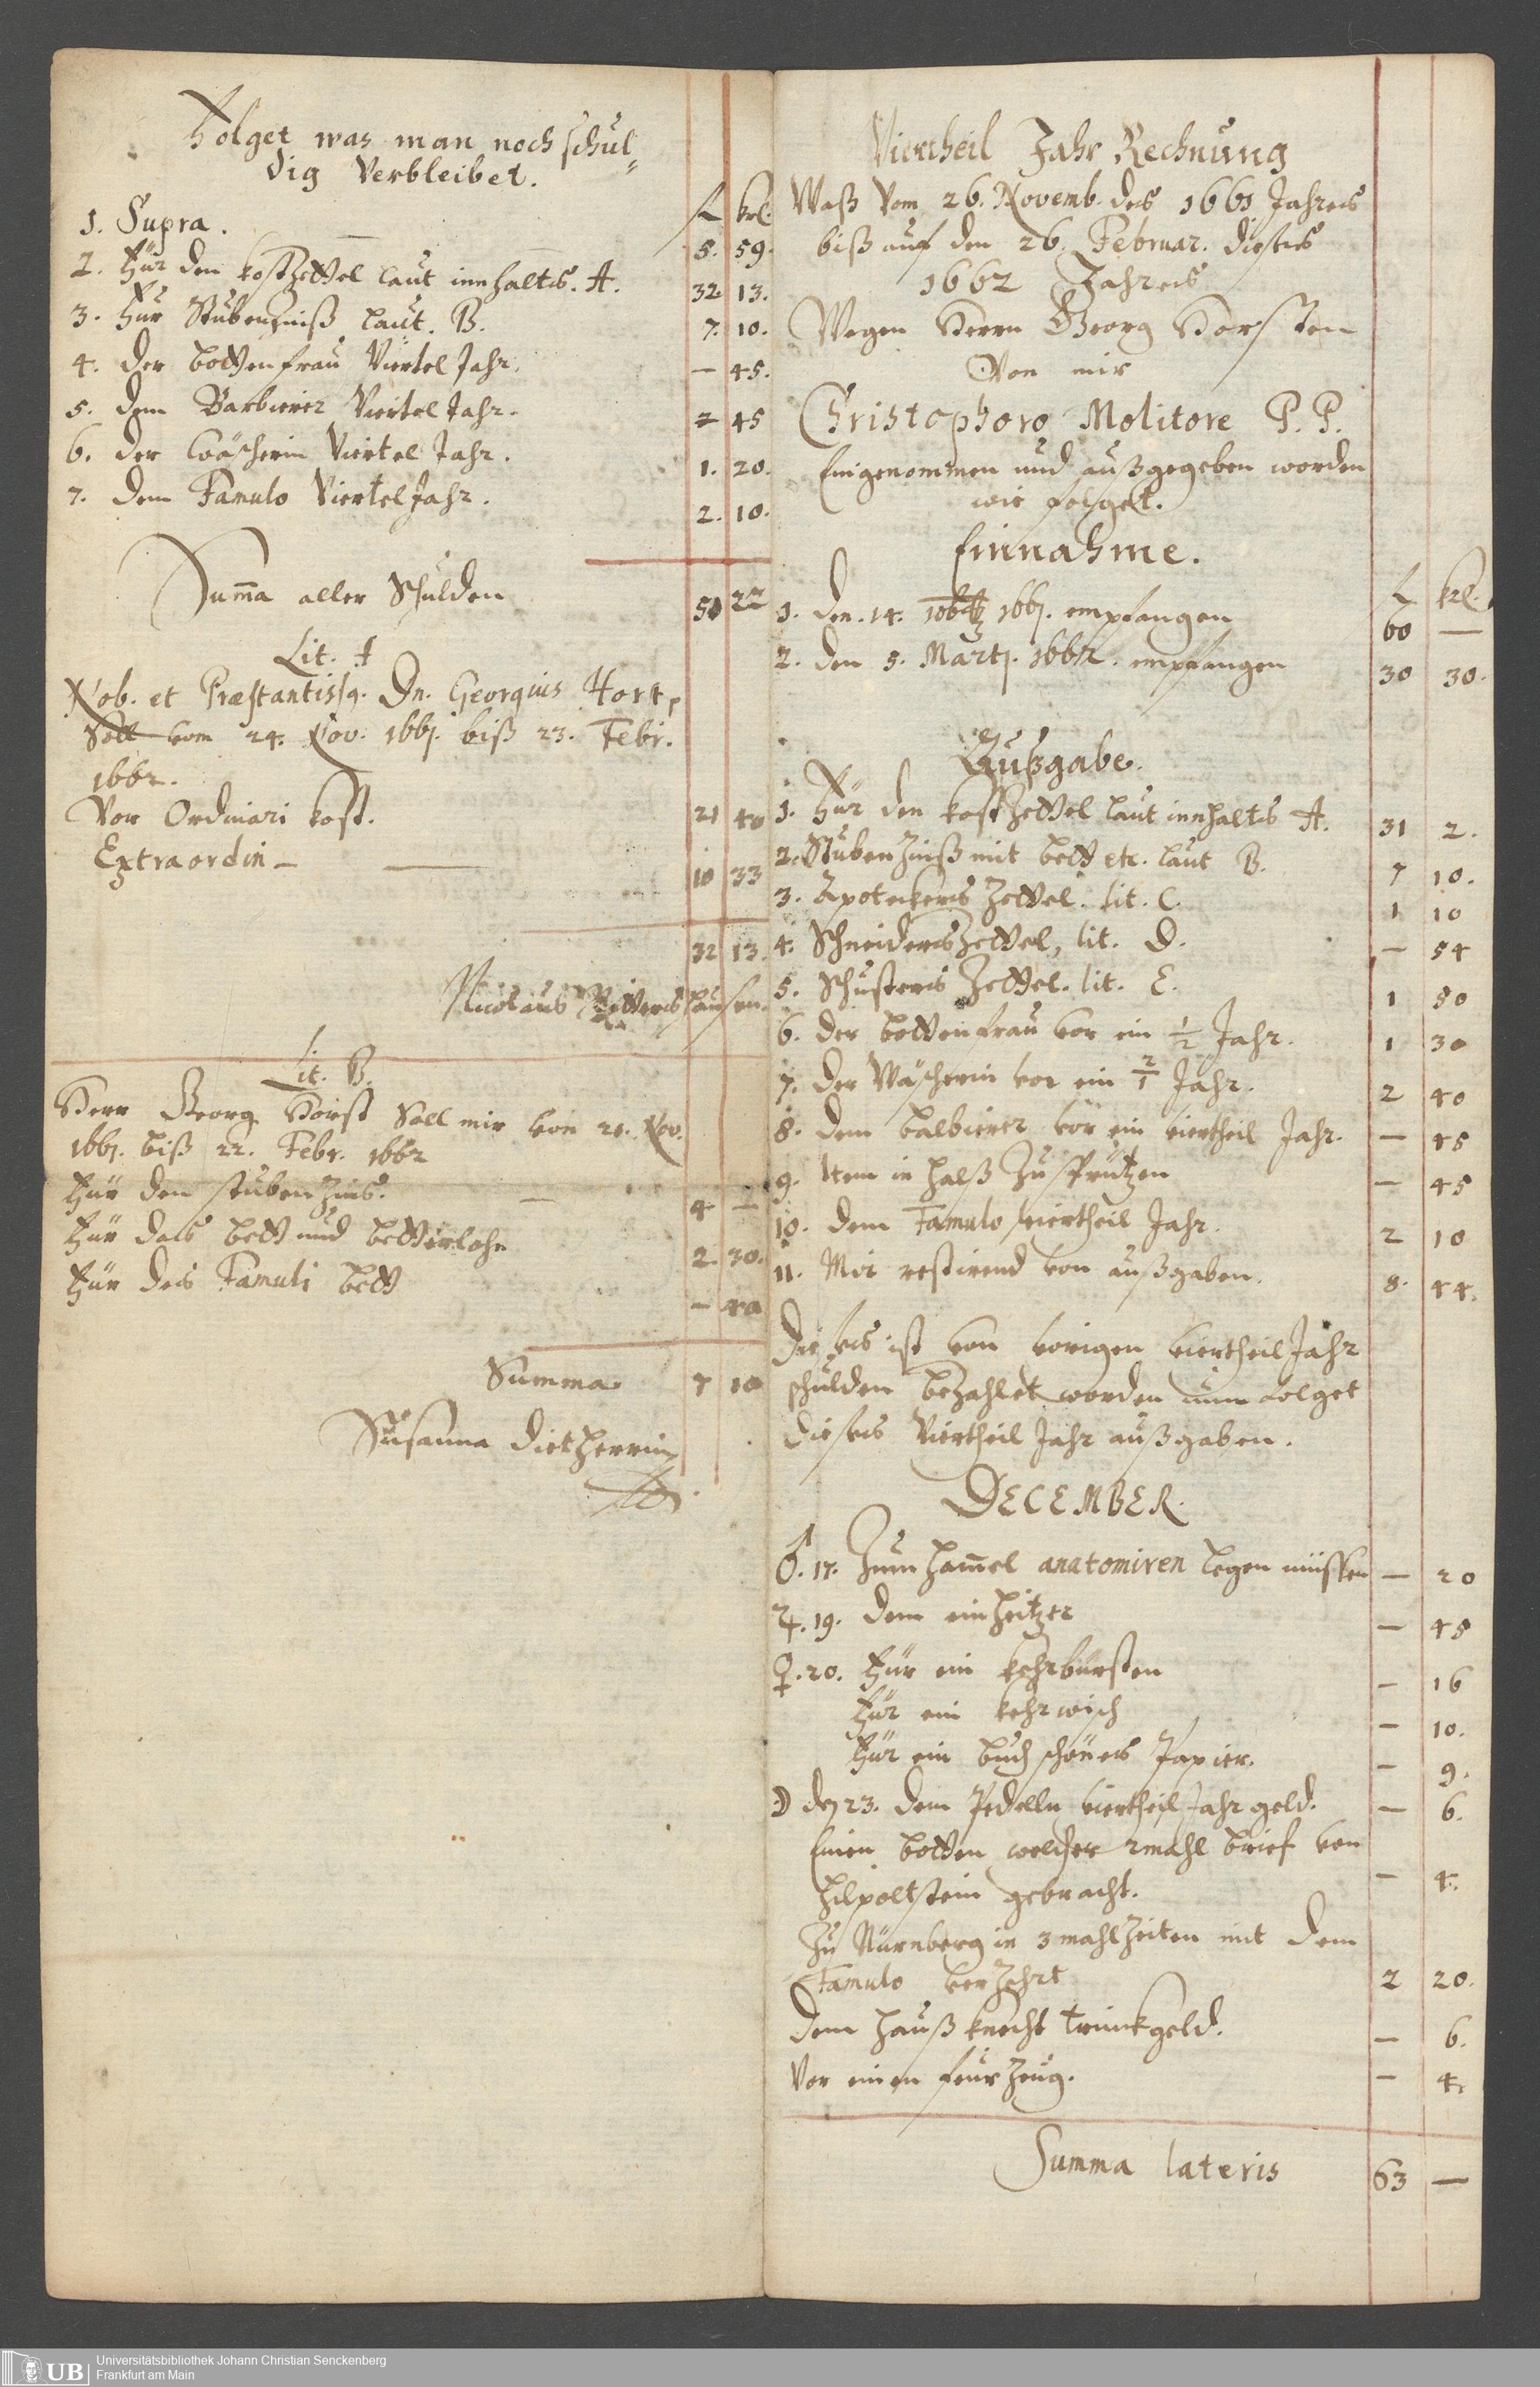 Folget was man noch schul-
dig Verbleibet.
f. krl.
1. Supra. 5. 59.
2. Für den kostzettel laut innhalts. A. 32. 13.
3. Für Stubenzinß laut. B. 7. 10.
4. der bettenfrau Viertel Jahr. — 45.
5. dem Barbierer Viertel Jahr. — 45
6. der Wäscherin Viertel Jahr. 1. 20.
7. dem Famulo Viertel Jahr. 2. 10.
Summa aller Schulden 50 22
Lit. A
Nob. et Præstantiss9. Dn. Georgius Horst,
Soll vom 24. Nov. 1661. biß 23. Febr.
1662.
Vor Ordinari kost. 21 40
Extraordin — 10 33
32 13.
Nicolaus Rittershausen.
Lit. B.
Herr Georg Horst Soll mir von 21. Nov.
1661. biß 22. Febr. 1662
Für den stuben Zins. 4 —
Für das bett und betterlohn 2. 30.
Für des Famuli bett — 40
Summa 7 10
Susanna Dietherrin
Viertheil Jahr Rechnung
Waß Vom 26. Novemb. des 1661 Jahres
biß auf den 26. Februar. dieses
1662 Jahres
Wegen Herrn Georg Horsten
Von mir
Christophoro Molitore P. P.
Eingenommen und außgegeben worden
wie folget.
Einnahme.
f. krl.
1. den. 14. 10br 1661. empfangen 60 —
2. den 5. Martj. 1662. empfangen 30 30.
Außgabe.
1. Für den kostzettel laut innhalts A. 31 2.
2. Stuben Zinß mit bett etc. laut B. 7 10.
3. Apoteckers Zettel. lit. C. 1 10
4. Schneiders Zettel, lit. D. — 54
5. Schusters Zettel. lit. E. 1 50
6. der bettenfrau vor ein 1/2 Jahr. 1 30
7. der Wäscherin vor ein 2/1 Jahr. 2 40
8. dem balbierer vor ein viertheil Jahr. — 45
9. Item in halß Zu sprützen — 45
10. dem Famulo viertheil Jahr. 2 10
11. Mir restirend von außgaben. 8. 44.
Dieses ist von vorigen viertheil Jahr
schulden bezahlet worden nun folget
dieses Viertheil Jahr außgaben.
DECEMBER.
♂. 17. Zum hamel anatomiren legen müssen — 20
♃. 19. dem einheitzer — 45
♀. 20. Für ein kehrbürsten — 16
Für ein kehrwisch — 10.
Für ein buch schönes Papier. — 9.
☽ den 23. dem Pedelln viertheil Jahr geld. — 6.
Einen botten welcher 2mahl brief von
Hilpoltstein gebracht. — 4.
Zu Nürnberg in 3 mahlzeiten mit dem
Famulo verzehrt 2 20.
dem haußknecht trinckgeld. — 6.
Vor einen feurzeug. — 4.
Summa lateris 63 —
UB
Universitätsbibliothek Johann Christian Senckenberg
Frankfurt am Main